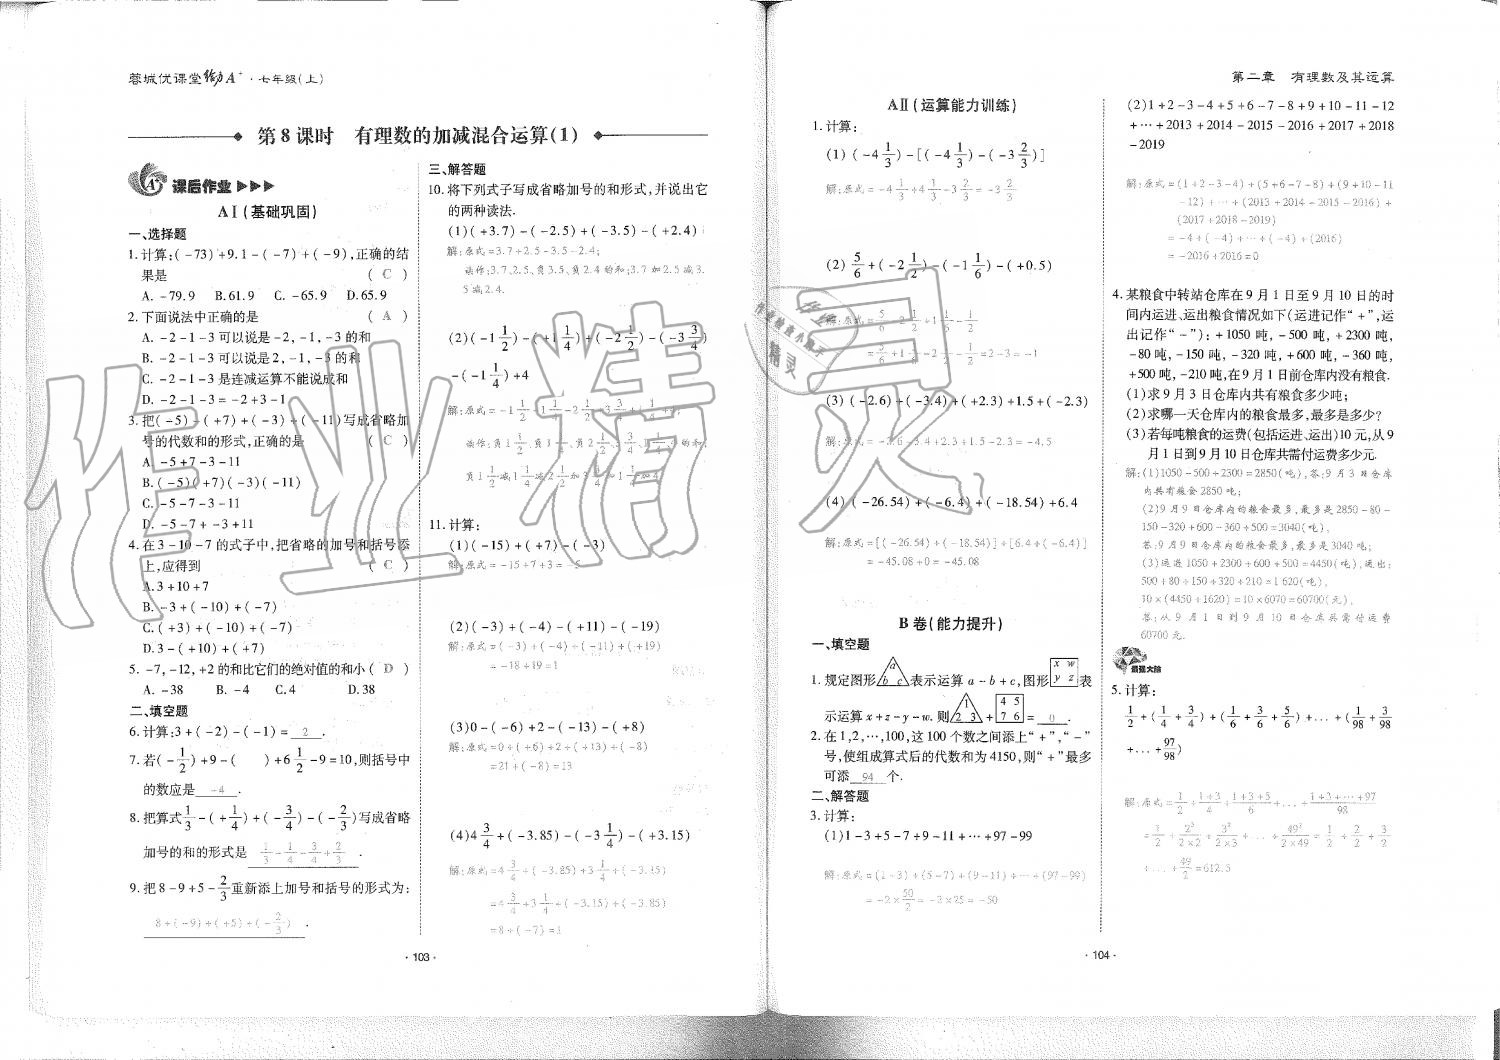 蓉城优课堂 给力A⁺·七年级(上)
第8课时 有理数的加减混合运算(1)
课后作业
AⅠ(基础巩固)
一、选择题
1.计算:(-73)+9.1-(-7)+(-9),正确的结
果是 ( C )
A. -79.9 B.61.9 C. -65.9 D.65.9
2.下面说法中正确的是 ( A )
A. -2-1-3可以说是-2,-1,-3的和
B. -2-1-3可以说是2,-1,-3的和
C. -2-1-3是连减运算不能说成和
D. -2-1-3=-2+3-1
3.把(-5)-(+7)+(-3)-(-11)写成省略加
号的代数和的形式,正确的是 ( C )
A. -5+7-3-11
B.(-5)(+7)(-3)(-11)
C. -5-7-3-11
D. -5-7+-3+11
4.在3-10-7的式子中,把省略的加号和括号添
上,应得到 ( C )
A.3+10+7
B. -3+(-10)+(-7)
C.(+3)+(-10)+(-7)
D.3-(+10)+(+7)
5. -7,-12,+2的和比它们的绝对值的和小( D )
A. -38 B. -4 C.4 D.38
二、填空题
6.计算:3+(-2)-(-1)= 2 .
7.若(-1/2)+9-( )+6 1/2-9=10,则括号中
的数应是 -4 .
8.把算式1/3-(+1/4)+(-3/4)-(-2/3)写成省略
加号的和的形式是 1/3-1/4-3/4+2/3 .
9.把8-9+5-2/3重新添上加号和括号的形式为:
8+(-9)+(+5)+(-2/3) .
三、解答题
10.将下列式子写成省略加号的和形式,并说出它
的两种读法.
(1)(+3.7)-(-2.5)+(-3.5)-(+2.4)
解:原式=3.7+2.5-3.5-2.4;
读作:3.7,2.5,负3.5,负2.4的和;3.7加2.5减3.
5减2.4.
(2)(-1 1/2)-(+1 1/4)+(-2 1/2)-(-3 3/4)
-(-1 1/4)+4
11.计算:
(1)(-15)+(+7)-(-3)
解:原式=-15+7+3=-5
(2)(-3)+(-4)-(+11)-(-19)
解:原式=(-3)+(-4)+(-11)+(+19)
=-18+19=1
(3)0-(-6)+2-(-13)-(+8)
解:原式=0+(+6)+2+(+13)+(-8)
=21+(-8)=13
(4)4 3/4+(-3.85)-(-3 1/4)-(+3.15)
解:原式=4 3/4+(-3.85)+3 1/4+(-3.15)
=4 3/4+3 1/4+(-3.15)+(-3.85)
=8+(-7)=1
·103·
第二章 有理数及其运算
AⅡ(运算能力训练)
1.计算:
(1) (-4 1/3)-[(-4 1/3)-(-3 2/3)]
解:原式=-4 1/3+4 1/3-3 2/3=-3 2/3
(2) 5/6+(-2 1/2)-(-1 1/6)-(+0.5)
(3) (-2.6)+(-3.4)+(+2.3)+1.5+(-2.3)
解:原式=-2.6-3.4+2.3+1.5-2.3=-4.5
(4) (-26.54)+(-6.4)+(-18.54)+6.4
解:原式=[(-26.54)+(-18.54)]+[6.4+(-6.4)]
=-45.08+0=-45.08
B卷(能力提升)
一、填空题
1.规定图形 a b c 表示运算a-b+c,图形 x w y z 表
示运算x+z-y-w.则 1 2 3 + 4 5 7 6 = 0 .
2.在1,2,…,100,这100个数之间添上“+”,“-”
号,使组成算式后的代数和为4150,则“+”最多
可添 94 个.
二、解答题
3.计算:
(1)1-3+5-7+9-11+…+97-99
解:原式=(1-3)+(5-7)+(9-11)+…+(97-99)
=-2×50/2=-2×25=-50
(2)1+2-3-4+5+6-7-8+9+10-11-12
+…+2013+2014-2015-2016+2017+2018
-2019
解:原式=(1+2-3-4)+(5+6-7-8)+(9+10-11
-12)+…+(2013+2014-2015-2016)+
(2017+2018-2019)
=-4+(-4)+…+(-4)+(2016)
=-2016+2016=0
4.某粮食中转站仓库在9月1日至9月10日的时
间内运进、运出粮食情况如下(运进记作“+”,运
出记作“-”):+1050吨,-500吨,+2300吨,
-80吨,-150吨,-320吨,+600吨,-360吨,
+500吨,-210吨,在9月1日前仓库内没有粮食.
(1)求9月3日仓库内共有粮食多少吨;
(2)求哪一天仓库内的粮食最多,最多是多少?
(3)若每吨粮食的运费(包括运进、运出)10元,从9
月1日到9月10日仓库共需付运费多少元.
解:(1)1050-500+2300=2850(吨),答:9月3日仓库
内共有粮食2850吨;
(2)9月9日仓库内的粮食最多,最多是2850-80-
150-320+600-360+500=3040(吨),
答:9月9日仓库内的粮食最多,最多是3040吨;
(3)运进1050+2300+600+500=4450(吨),运出:
500+80+150+320+360+210=1620(吨),
10×(4450+1620)=10×6070=60700(元),
答:从9月1日到9月10日仓库共需付运费
60700元.
最强大脑
5.计算:
1/2+(1/4+3/4)+(1/6+3/6+5/6)+…+(1/98+3/98
+…+97/98)
解:原式=1/2+(1+3)/4+(1+3+5)/6+…+(1+3+…+97)/98
=1/2+2²/(2×2)+3²/(2×3)+…+49²/(2×49)=1/2+2/2+3/2
+…+49/2=612.5
·104·
作业精灵